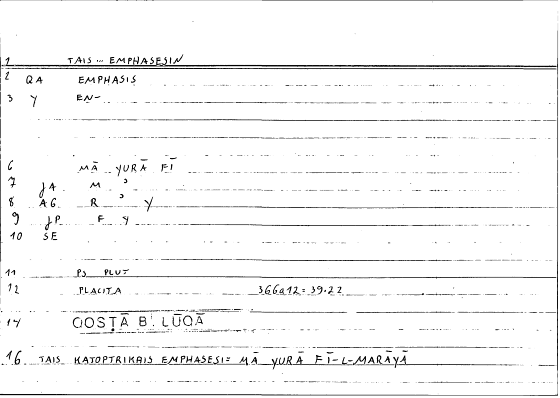 1 TAIS ... EMPHASESIN
2 QA EMPHASIS
3 Y EN-
6 MĀ YURĀ FĪ
7 JA M ʾ
8 AG R ʾ Y
9 JP F Y
10 SE
11 PS PLUT
12 PLACITA 366a12 = 39.22
14 QOSṬĀ B. LŪQĀ
16 TAIS KATOPTRIKAIS EMPHASESI = MĀ YURĀ FĪ-L-MARĀYĀ